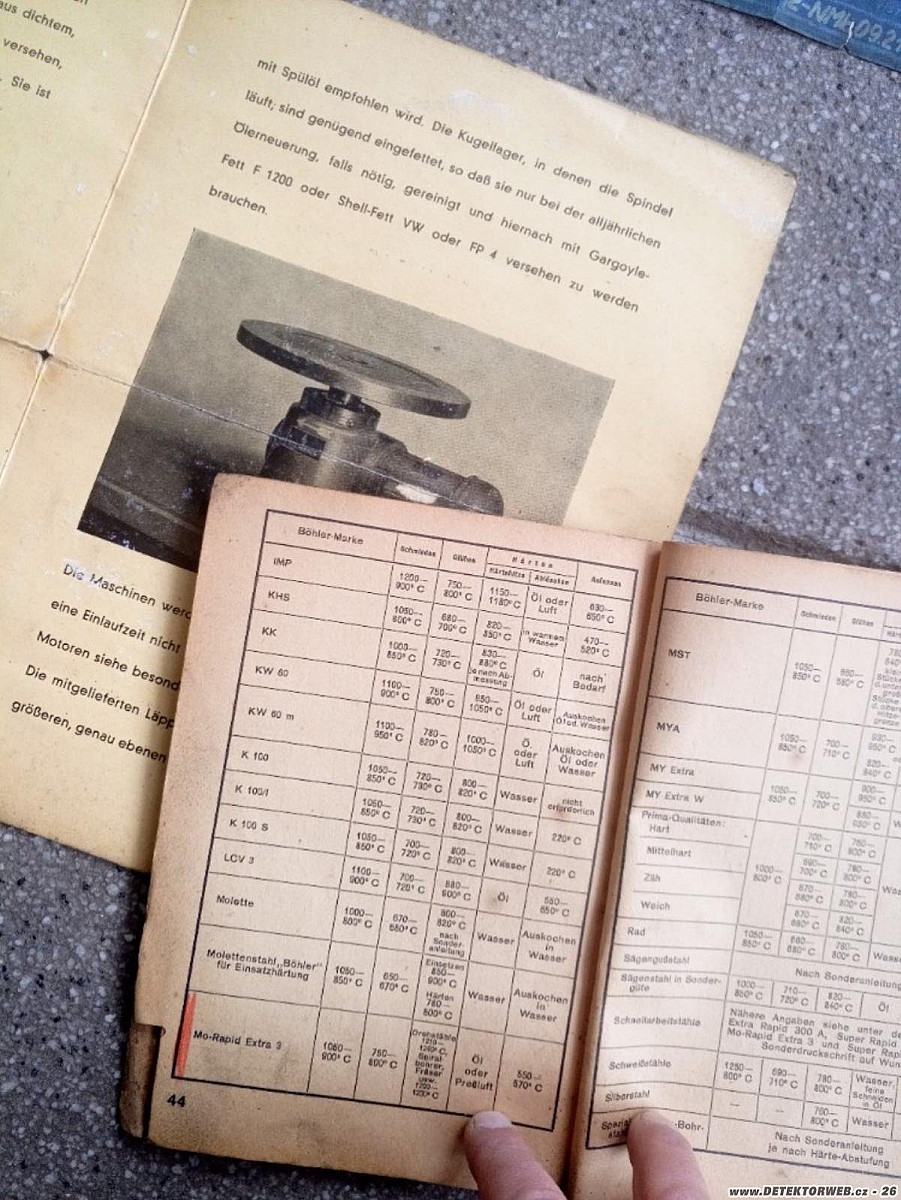 aus dichtem,
versehen,
Sie ist
z-NM4092
mit Spülöl empfohlen wird. Die Kugellager, in denen die Spindel
läuft, sind genügend eingefettet, so daß sie nur bei der alljährlichen
Ölerneuerung, falls nötig, gereinigt und hiernach mit Gargoyle-
Fett F 1200 oder Shell-Fett VW oder FP 4 versehen zu werden
brauchen.
Die Maschinen werd
eine Einlaufzeit nicht
Motoren siehe besond
Die mitgelieferten Läpp
größeren, genau ebenen
Böhler-Marke Schmieden Glühen Härten Anlassen
Härtehitze Ablöschen
IMP 1200—900° C 750—800° C 1150—1180° C Öl oder Luft 630—650° C
KHS 1050—800° C 680—700° C 820—850° C in warmem Wasser 470—520° C
KK 1000—850° C 720—730° C 830—880° C je nach Abmessung Öl nach Bedarf
KW 60 1100—900° C 750—800° C 950—1050° C Öl oder Luft Auskochen Öl od. Wasser
KW 60 m 1100—950° C 780—820° C 1000—1050° C Ö. oder Luft Auskochen Öl oder Wasser
K 100 1050—850° C 720—730° C 800—820° C Wasser nicht erforderlich
K 100/I 1050—850° C 720—730° C 800—820° C Wasser 220° C
K 100 S 1050—850° C 700—720° C 800—820° C Wasser 220° C
LCV 3 1100—900° C 700—720° C 880—900° C Öl 550—650° C
Molette 1000—800° C 670—680° C 800—820° C nach Sonderanleitung Wasser Auskochen in Wasser
Molettenstahl „Böhler" für Einsatzhärtung 1050—850° C 650—670° C Einsetzen 850—900° C Härten 780—800° C Wasser Auskochen in Wasser
Mo-Rapid Extra 3 1050—900° C 750—800° C Drehstähle 1210—1240° C, Spiralbohrer, Fräser usw. 1200—1230° C Öl oder Preßluft 550—570° C
44
Böhler-Marke Schmieden Glühen
MST 1050—850° C 660—680° C
MYA 1050—850° C 700—710° C
MY Extra
MY Extra W 1050—850° C 700—720° C
Prima-Qualitäten:
Hart 700—710° C 780—800° C
Mittelhart 690—700° C 780—800° C
Zäh 1000—800° C 670—680° C 780—800° C
Weich 670—680° C 820—840° C
Rad 1050—850° C 660—680° C 780—800° C
Sägengußstahl Nach Sonderanleitung
Sägenstahl in Sondergüte 1000—850° C 710—720° C 820—840° C Öl
Schneidarbeitstähle Nähere Angaben siehe unter de
Extra Rapid 300 A, Super Rapid
Mo-Rapid Extra 3 und Super Rap
Sonderdruckschrift auf Wun
Schweißstähle 1250—800° C 690—710° C 780—800° C Wasser, feine Schneiden in Öl
Silberstahl — — 760—800° C Wasser
-Bohr-
Nach Sonderanleitung
je nach Härte-Abstufung
www.DETEKTORWEB.cz - 26